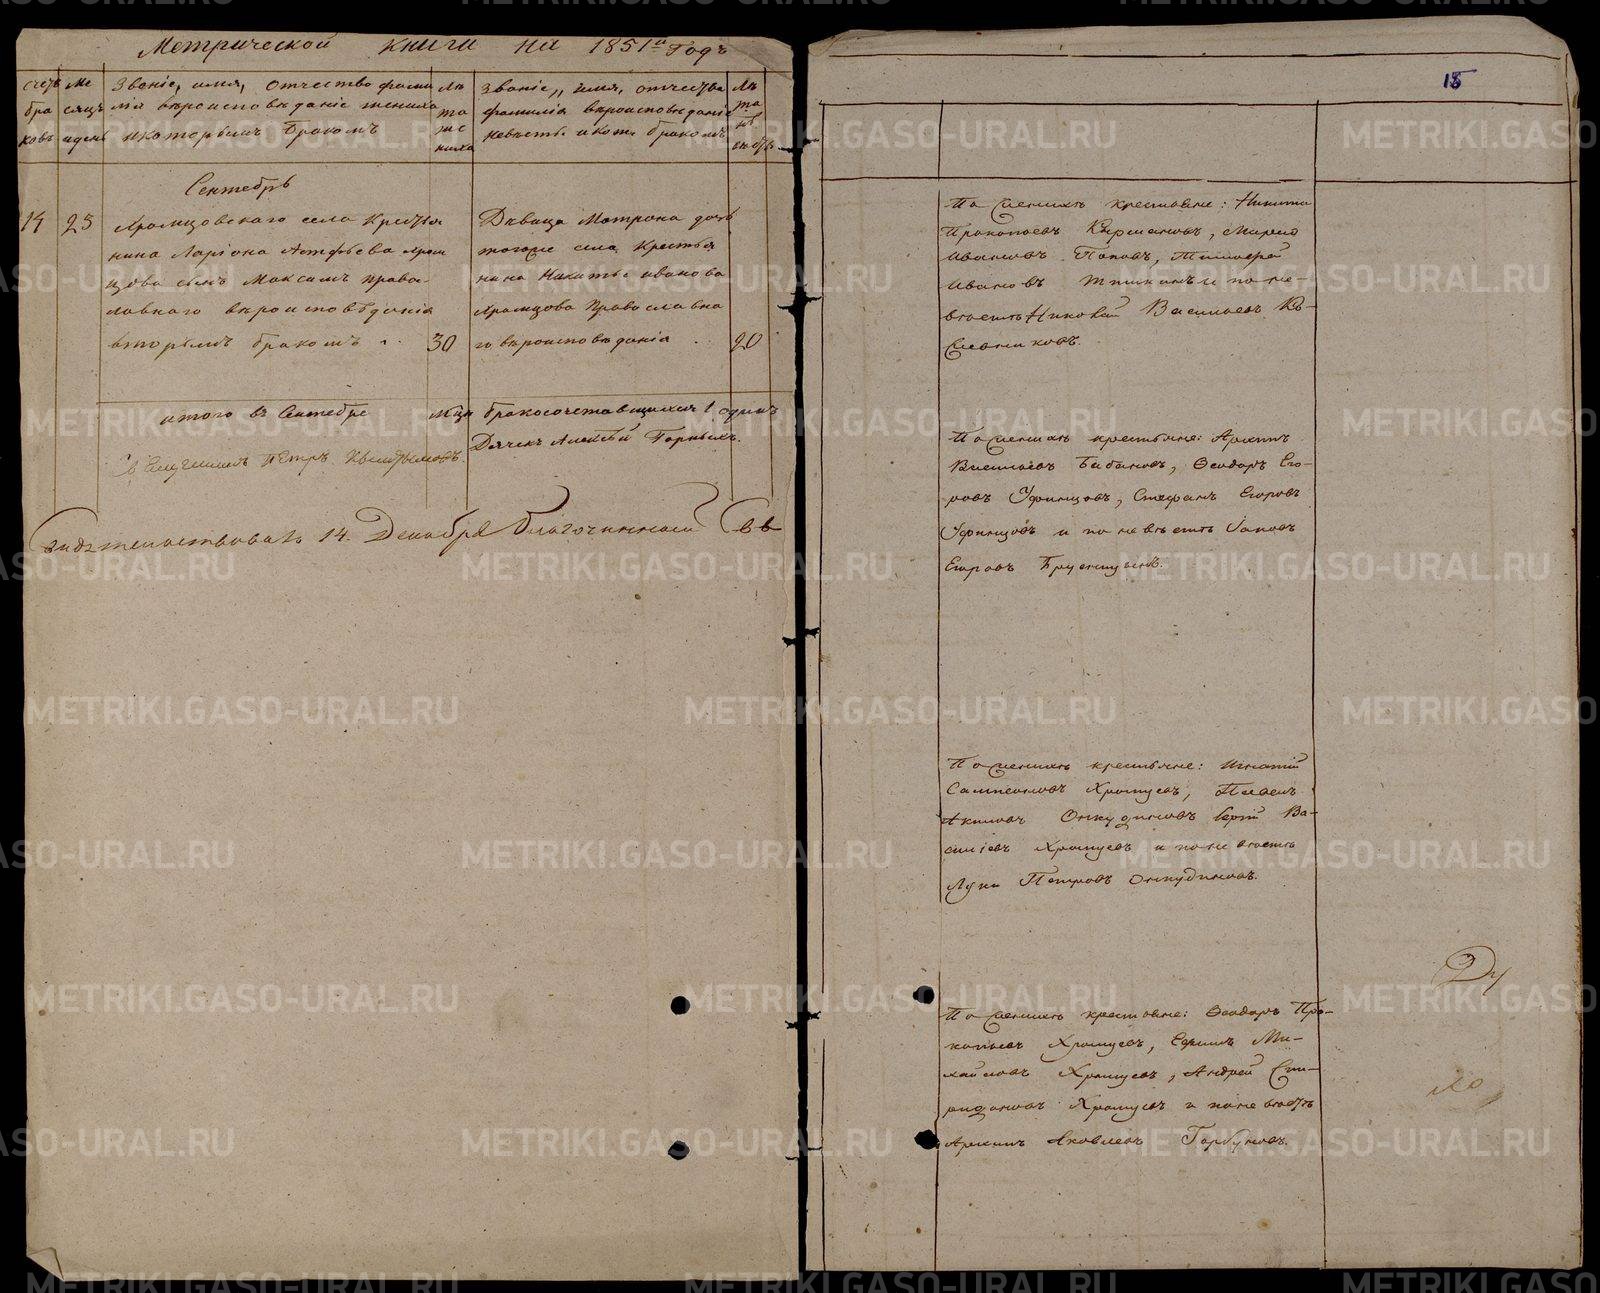 Метрической книги на 1851й Годъ
счетъ браковъ
Месяцъ и день
Званіе, имя, отчество фамилія вѣроисповѣданіе жениха и которымъ бракомъ
Лѣта жениха
Званіе, имя, отчество фамилія вѣроисповѣданіе невѣсты и кот. бракомъ
Лѣта невѣсты
Сентебрь
14 23
Храмцовскаго села Крестья
нина Ларіона
сынъ Максимъ право
славнаго вѣроисповѣданія
вторымъ бракомъ 30
Дѣвица Матрона дочь
тогоже села Крестья
нина Никиты иванова
Храмцова Православна
го вѣроисповѣданія 20
итого въ Сентебре м-цѣ бракосочетавшихся 1 одинъ
Священникъ Петръ
Дячекъ Алексѣй Горныхъ.
Свидѣтельствовалъ 14 Декабря Благочинный
15
По женихѣ крестьяне: Никита
Прокопьевъ
Ивановъ Поповъ, Тимофей
Ивановъ и по не-
вѣстѣ Николай Васильевъ
По женихѣ крестьяне:
Бабановъ, Ѳеодоръ Его-
ровъ Уфинцовъ, Стефанъ Егоровъ
Уфинцовъ и по невѣстѣ
Егоровъ Брусницынъ.
По женихѣ крестьяне: Игнатій
Сампсоновъ Храмцовъ, Павелъ
Акимовъ Онкудиновъ Сергій Ва-
силіевъ Храмцовъ и по невѣстѣ
Лука Петровъ Онкудиновъ.
По женихѣ крестьяне: Ѳеодоръ Про-
копьевъ Храмцовъ, Ефимъ Ми-
хайловъ Храмцовъ, Андрей Спи-
ридоновъ Храмцовъ и по невѣстѣ
Яковлевъ Горбуновъ.
METRIKI.GASO-URAL.RU